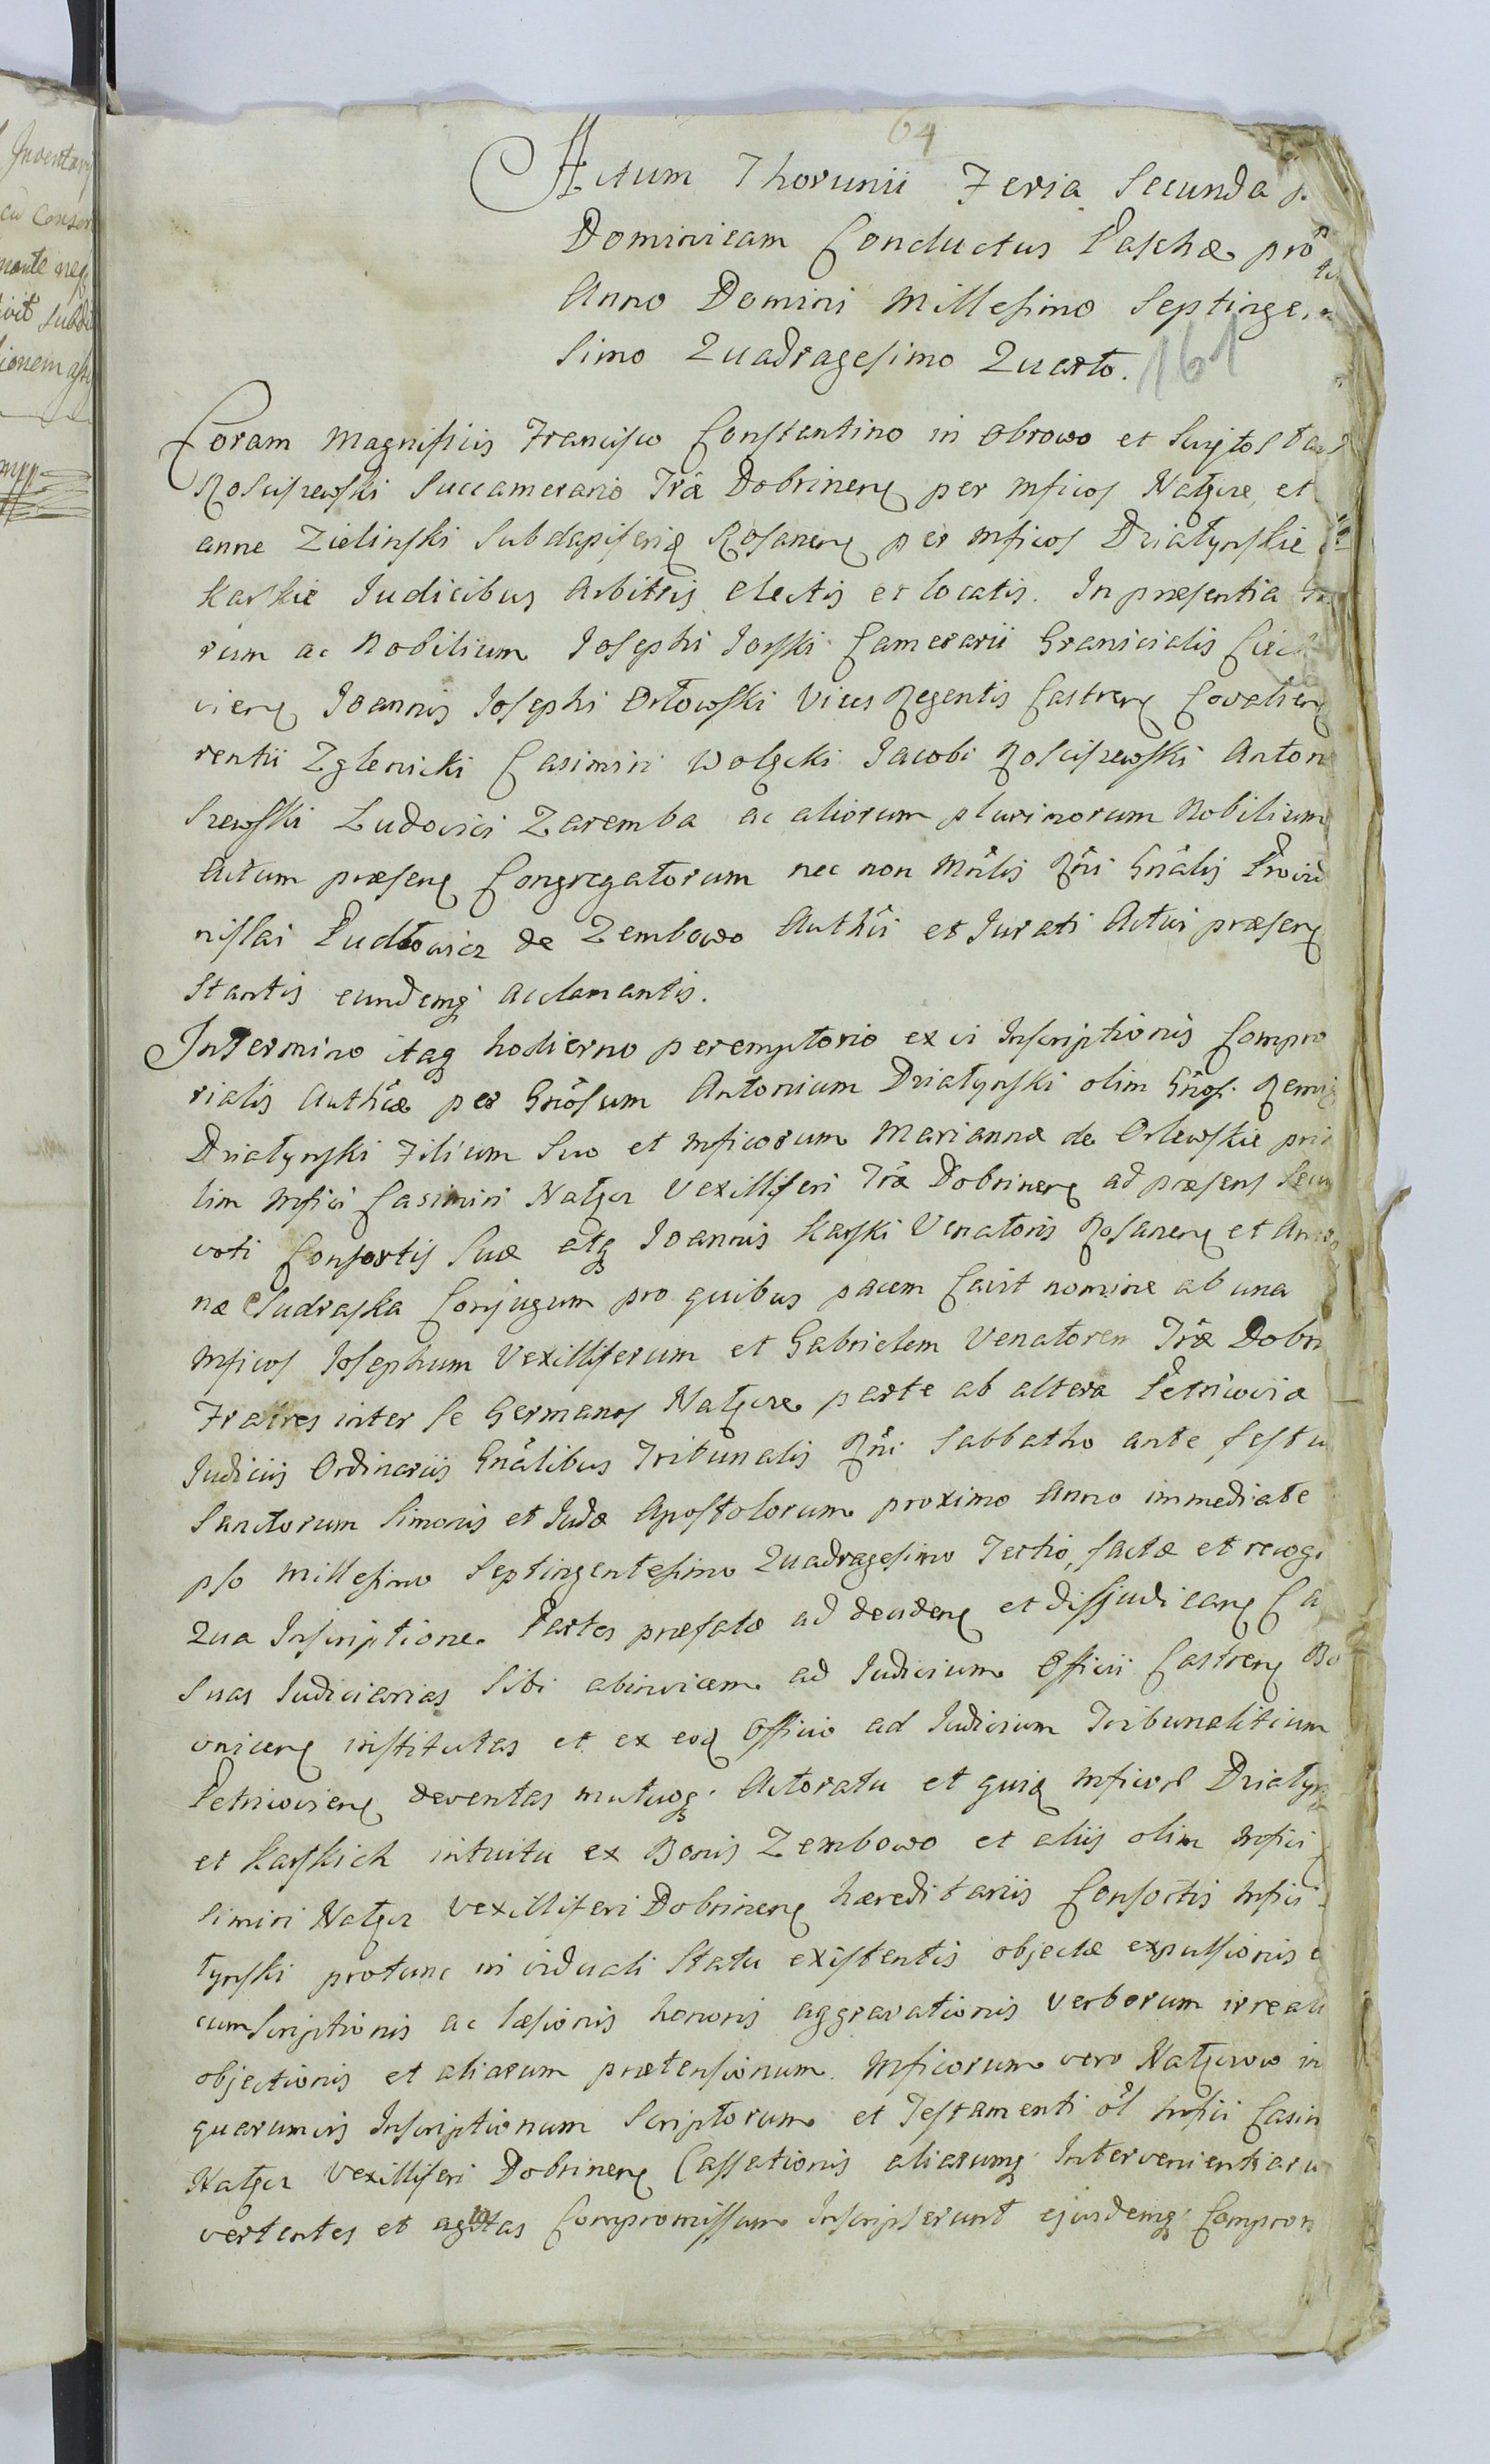 64
Actum Thorunii Feria Secunda p.
Dominicam Conductus Paschæ pro
Anno Domini Millesimo Septinge
simo Quadragesimo Quarto. 161
Coram Magnificis Francisco Constantino in Obrowo et
Rosciszewski Succamerario Trae Dobrinens per Mficos Natęcze et
anne Zielinski Subdapifero Rosanens per Mficos Działynskie
Karskie Iudicibus Arbitris electis et locatis. In præsentia
rum ac Nobilium Josephi Jorski Camerarii Granicialis
viens Joannis Josephi Orłowski Vices Regentis Castrens Covaliens
rentii Zglenicki Casimiri Wolęcki Jacobi Rosciszewski Anton
szewski Ludovici Zaremba ac aliorum plurimorum Nobilium
Actum præsens Congregatorum nec non Mrlis Rni Gnalis Provid
nislai Pudłowicz de Zembowo Authci et Jurati Actui præsens
stantis eundemq acclamantis.
In Termino itaq hodierno peremptorio ex vi Inscriptionis Compro
rialis Authcæ per Gnosum Antonium Działynski olim Gnos. Remig
Działynski Filium Suo et Mficorum Mariannæ de Orlewskie pri
lim Mfici Casimiri Natęcz Vexilliferi Træ Dobrinens ad præsens Secun
voti Consortis Suæ atq Joannis Karski Venatoris Rosanens et An
næ Sudraska Conjugum pro quibus pacem Cavit nomine ab una
Mficos Josephum Vexilliferum et Gabrielem Venatorem Træ Dobri
Fratres inter se Germanos Natęcze parte ab altera Petricoviæ
Judiciis Ordinariis Gnalibus Tribunalis Rni Sabbatho ante festu
Sanctorum Simonis et Judæ Apostolorum proximo Anno immediate
pso Millesimo Septingentesimo Quadragesimo Tertio, factæ et recog
Qua Inscriptione Partes præfatæ ad decidens et disjudicans Ca
Suas Judiciarias Sibi abinvicem ad Judicium Officii Castrens Bo
onicens institutas et ex eoq Officio ad Judicium Tribunalitium
Petricoviens deventas mutuoq Actoratu et quiq Mficor Działyn
et Karskich intuitu ex Bonis Zembowo et aliis olim Mfici
simiri Natęcz Vexilliferi Dobrinens hæreditariis Consortis Mfici
łynski protunc in viduali Statu existentis objectæ expulsionis
cumscriptionis ac læsionis honoris aggravationis Verborum irreali
objectionis et aliarum prætensionum. Mficorum vero Natęczow in
quarumvis Inscriptionum Scriptorum et Testamenti ol Mfici Casim
Natęcz Vexilliferi Dobrinens Cassationis aliarumq Intervenientiaru
vertentes et agitatas Compromissum Inscripserunt ejusdemq Comprom